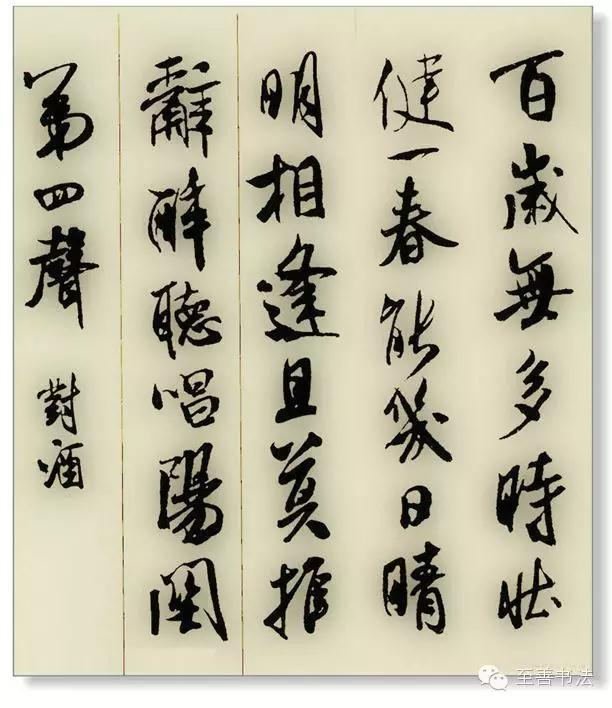 百歲無多時壯
健一春能幾日晴
明相逢且莫推
辭醉聽唱陽關
第四聲 對酒
至善书法